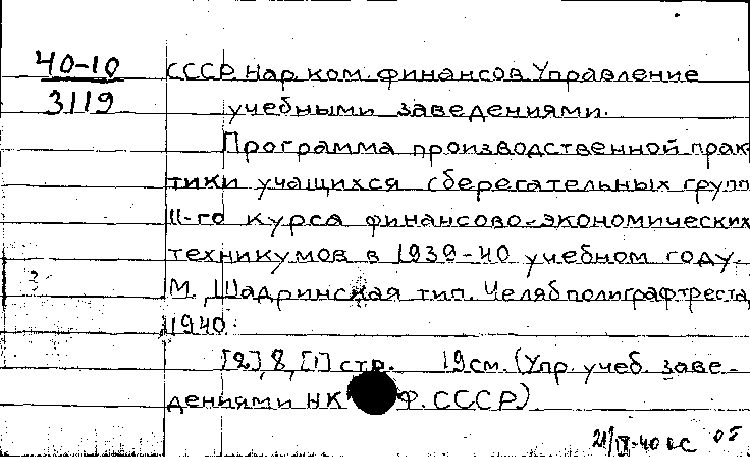 40-10
3119
СССР. Нар. ком. финансов. Управление
учебными заведениями.
Программа производственной прак
тики учащихся сберегательных групп
II-го курса финансово-экономических
техникумов в 1939-40 учебном году.
М., Шадринская тип. Челяб полиграфтреста,
1940.
[2], 8, [1] стр. 19 см. (Упр. учеб. заве-
дениями НК Ф. СССР)